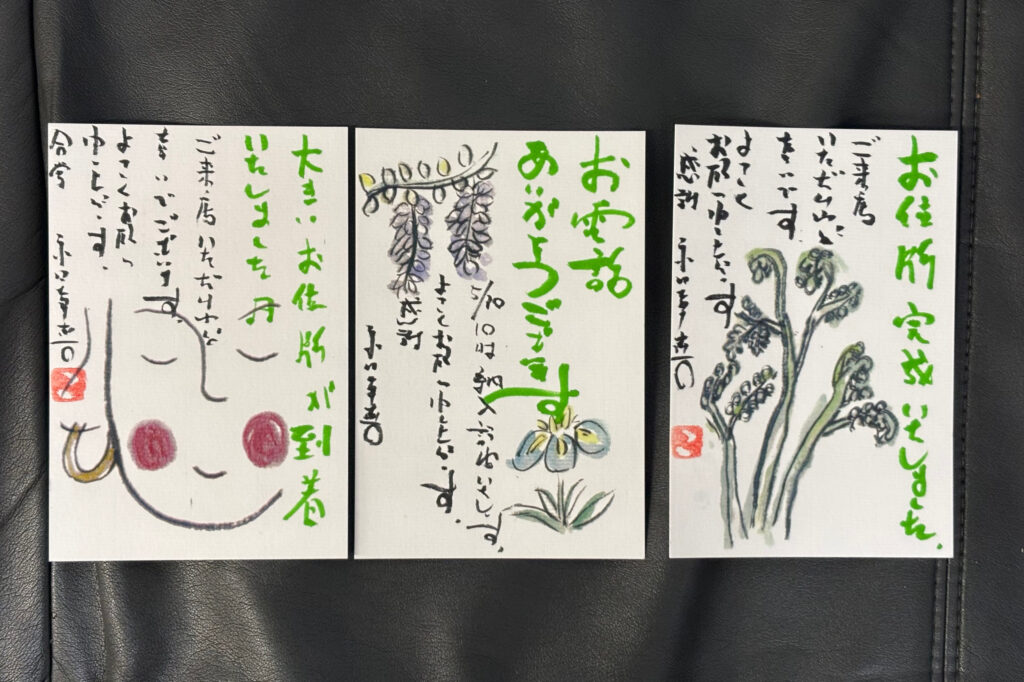 大きいお位牌が到着
いたしました
ご来店いただければ
幸いでございます。
よろしくお願い
申し上げます。
合掌
お電話
ありがとうございます
5/10 10時 納入
いたします。
よろしくお願い申し上げます。
感謝
お位牌完成いたしました。
ご来店
いただければ
幸いです
よろしく
お願い申し上げます
感謝